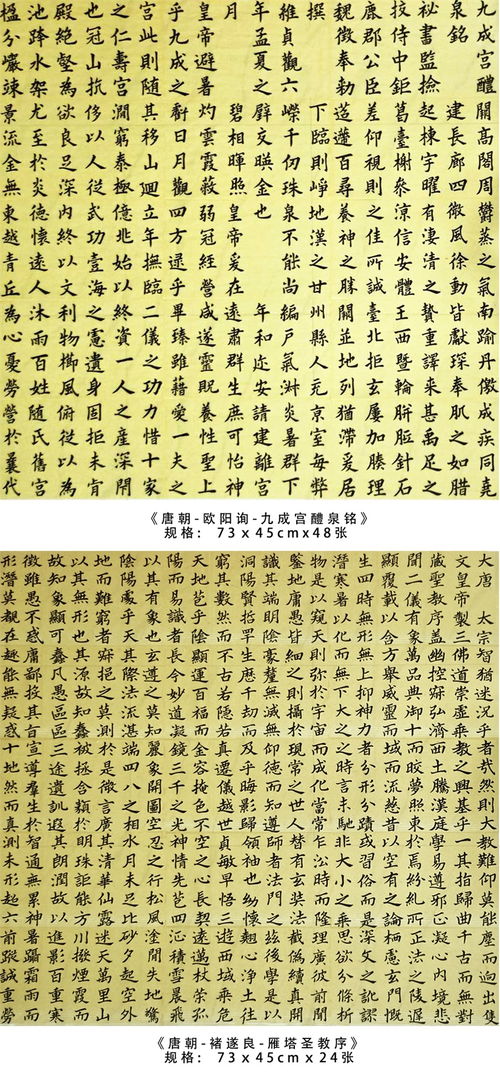 九成宮醴閣高閣周鬱蒸之氣南踰丹徼成疾同堯
泉銘建長廊四微風徐動皆獻琛奉肌之如腊
祕書監撿起棟宇曜有淒清之贄重譯來甚禹足之
挍侍中鉅葛臺榭參涼信安體王西暨輪胼胝針石
鹿郡公臣差仰視則之佳所誠臺北拒玄屢加腠理
魏徵奉勑造遰百尋養神之勝關並地列猶滯爰居
撰下臨則崢地漢之甘州縣人充京室每弊
維貞觀六嶸千仞珠泉不能尚編戶氣淋炎暑群下
年孟夏之壁交暎金也年和迩安請建離宮
月碧相暉照皇帝爰在遠肅群生庶可怡神
皇帝避暑灼雲霞蔽弱冠經營成遂靈貺養性聖上
乎九成之虧日月觀四方逮乎畢臻雖藉愛一夫之
宮此則隨其移山迴立年撫臨二儀之功力惜十家
之仁壽宮澗窮泰極億兆始以終資一人之產深閇
也冠山抗侈以人從武功壹海之慮遺身固拒未肯
殿絶壑為欲良足深內終以文利物櫛風俯從以為
池跨水架尤至於炎德懷遠人沐雨百姓隨氏舊宮
楹分巖竦景流金無東越青丘為心憂勞營於曩代
《唐朝-欧阳询-九成宫醴泉铭》
规格： 73x45cmx48张
大唐太宗智猶迷況乎者哉然則大教難仰莫能塵而迥出隻
文皇帝製三佛道崇虛乘教之興基乎一其指歸曲千古而無對
藏聖教序蓋幽控寂弘濟西土騰漢庭學易遵邪正凝心內境悲
聞二儀有象萬品典御十而皎夢照東於焉紛糺所正法之陵遲
顯覆載以含方舉威靈而域而流慈昔有之論栖慮玄門慨
生四時無形無上抑神力者分形分蹟或習俗而是深文之訛謬
潛寒暑以化而無下大之之時言未馳非大小之乘思欲分條析
物是以窺天則弥於宇而成化當常乍訟時而隆理廣彼前聞
鑒地庸愚皆細之則攝於現常之世人替有玄奘法截偽續真開
識其端明陰豪釐無滅無仰德而知遵師者法門之茲後學是以
洞陽賢哲罕生歷千及乎晦影歸領袖也幼懷翹心淨土往
窮其數然而不古若隱劫而真遷儀越世貞敏早悟三遊西域乘危
天地苞乎陰顯運百福而金容掩色不空之心長契遠邁杖策孤
陽而易識者長今妙道凝鏡三千之光神情先苞四征積雪晨飛
以其有象也玄遵之莫知麗象開圖空忍之行松風塗閒失地驚
陰陽處乎天其際法流湛端四八之相水月未足比砂夕起空外
地而難窮者寂挹之莫於是微言廣其清華仙露迷天萬里山
以其無形也其源故知蠢被拯含類於明珠詎能方川撥煙霞而
故知象顯可蠢凡愚區區三途遺訓遐其朗潤故以進影百重寒
徵雖愚不惑庸鄙投其百宣導羣生於智通無累神暑躡霜雨而
形潛莫覩在趣能無疑惑十地然而真測未形超六前蹤誠重勞
《唐朝-褚遂良-雁塔圣教序》
规格： 73x45cmx24张